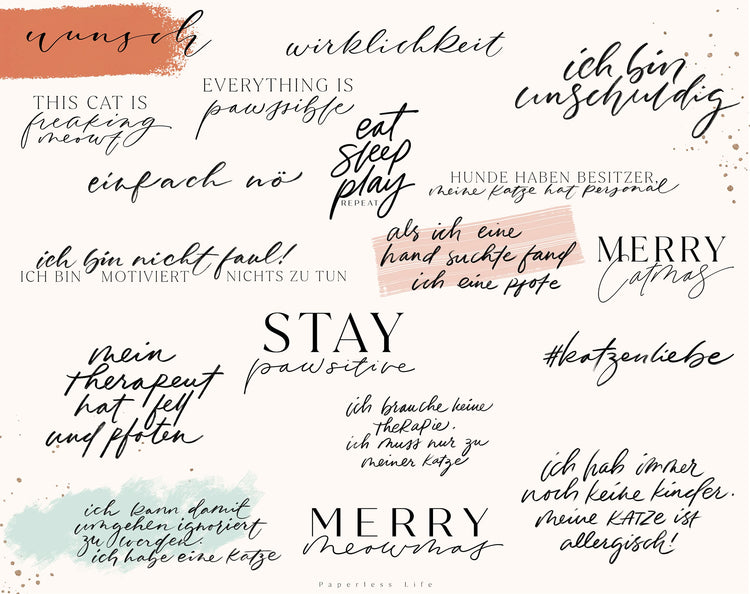 wunsch
wirklichkeit
ich bin
unschuldig
THIS CAT IS
freaking
meowf
EVERYTHING IS
pawssible
eat
sleep
play
REPEAT
einfach nö
HUNDE HABEN BESITZER,
meine Katze hat Personal
ich bin nicht faul!
ICH BIN MOTIVIERT NICHTS ZU TUN
als ich eine
hand suchte fand
ich eine pfote
MERRY
Catmas
STAY
pawsitive
#katzenliebe
mein
therapeut
hat fell
und pfoten
ich brauche keine
Therapie.
ich muss nur zu
meiner Katze
ich hab immer
noch keine kinder.
meine KATZE ist
allergisch!
ich kann damit
umgehen ignoriert
zu werden.
ich habe eine Katze
MERRY
meowmas
Paperless Life